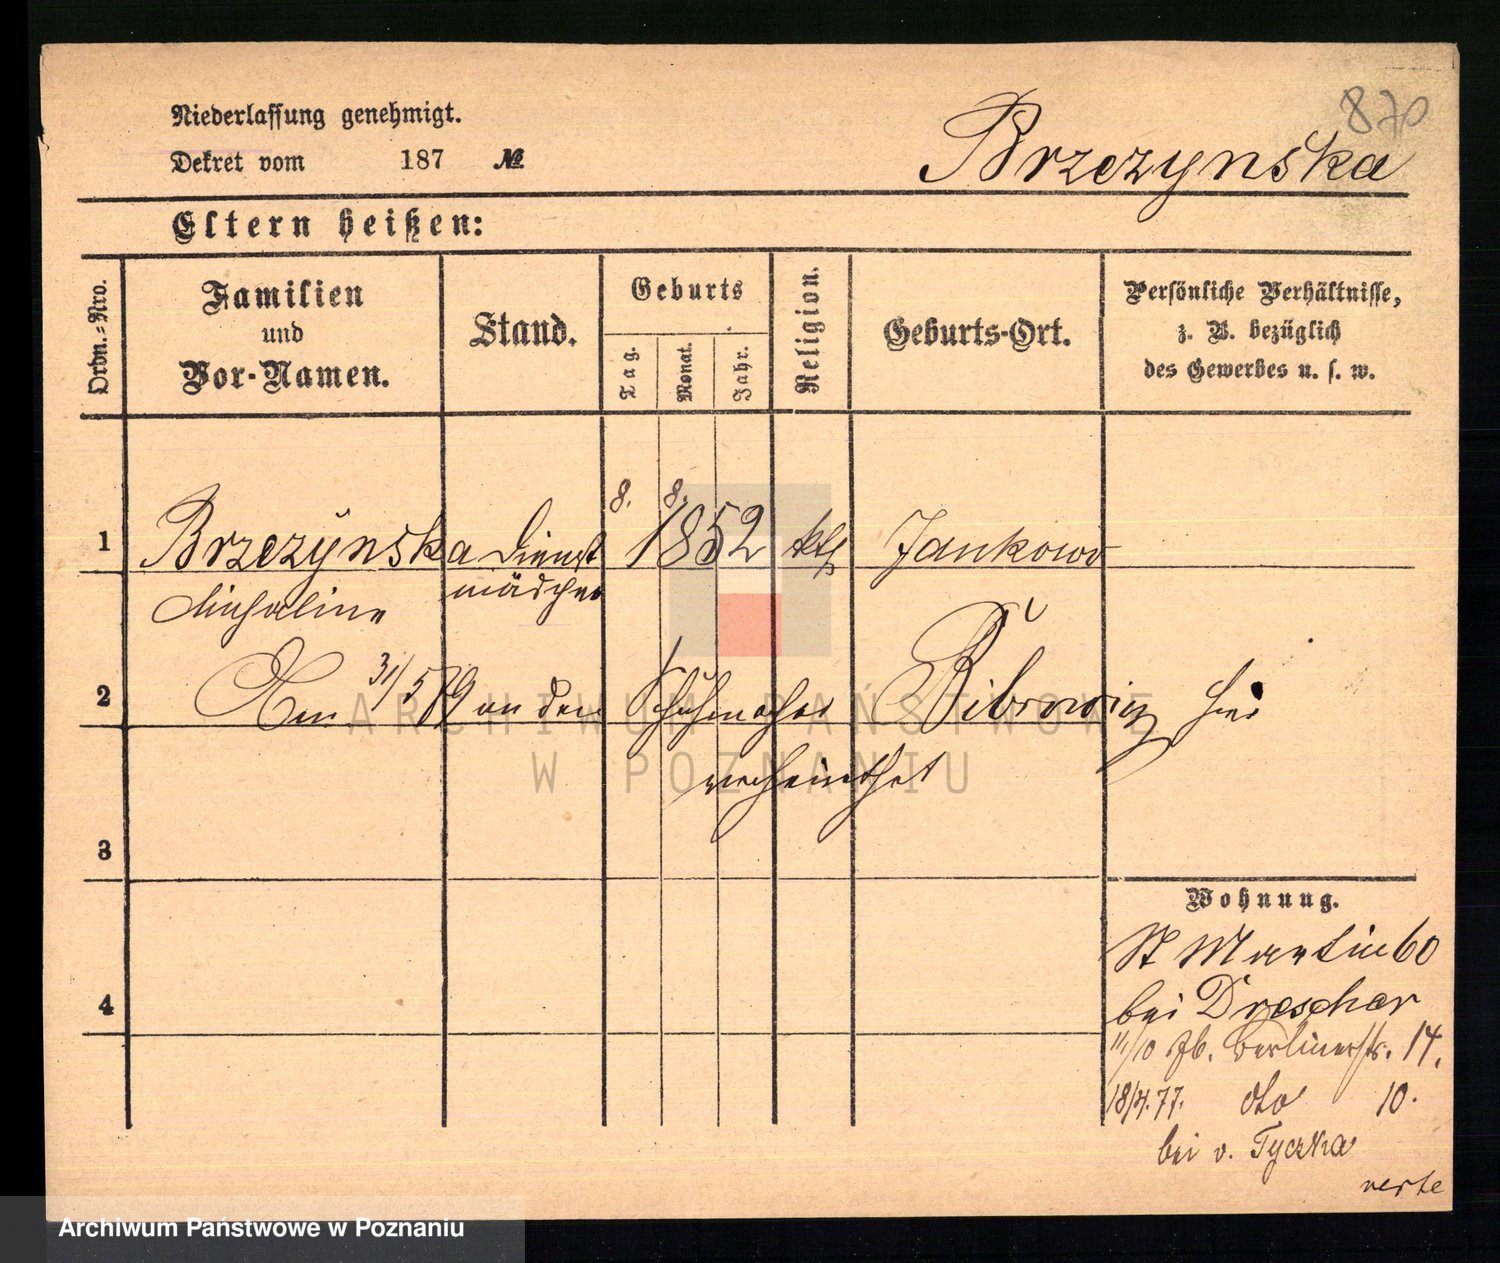 870
Niederlassung genehmigt.
Dekret vom 187 №
Brzezynska
Eltern heißen:
Ordn.-Nro.
Familien
und
Vor-Namen.
Stand.
Geburts
Tag.
Monat.
Jahr.
Religion.
Geburts-Ort.
Persönliche Verhältnisse,
z. B. bezüglich
des Gewerbes u. s. w.
1 Brzezynska Dienst 8. 8. 1852 kth Jankowo
Michaline mädchen
2 Am 31/5 79 an den Schuhmacher hier
verheirathet
3
4
Wohnung.
St Martin 60
bei Drescher
11/10 Zb. Berlinerstr. 14.
18/4.77. dto 10.
bei v. Tyczka
verte
ARCHIWUM PAŃSTWOWE
W POZNANIU
Archiwum Państwowe w Poznaniu